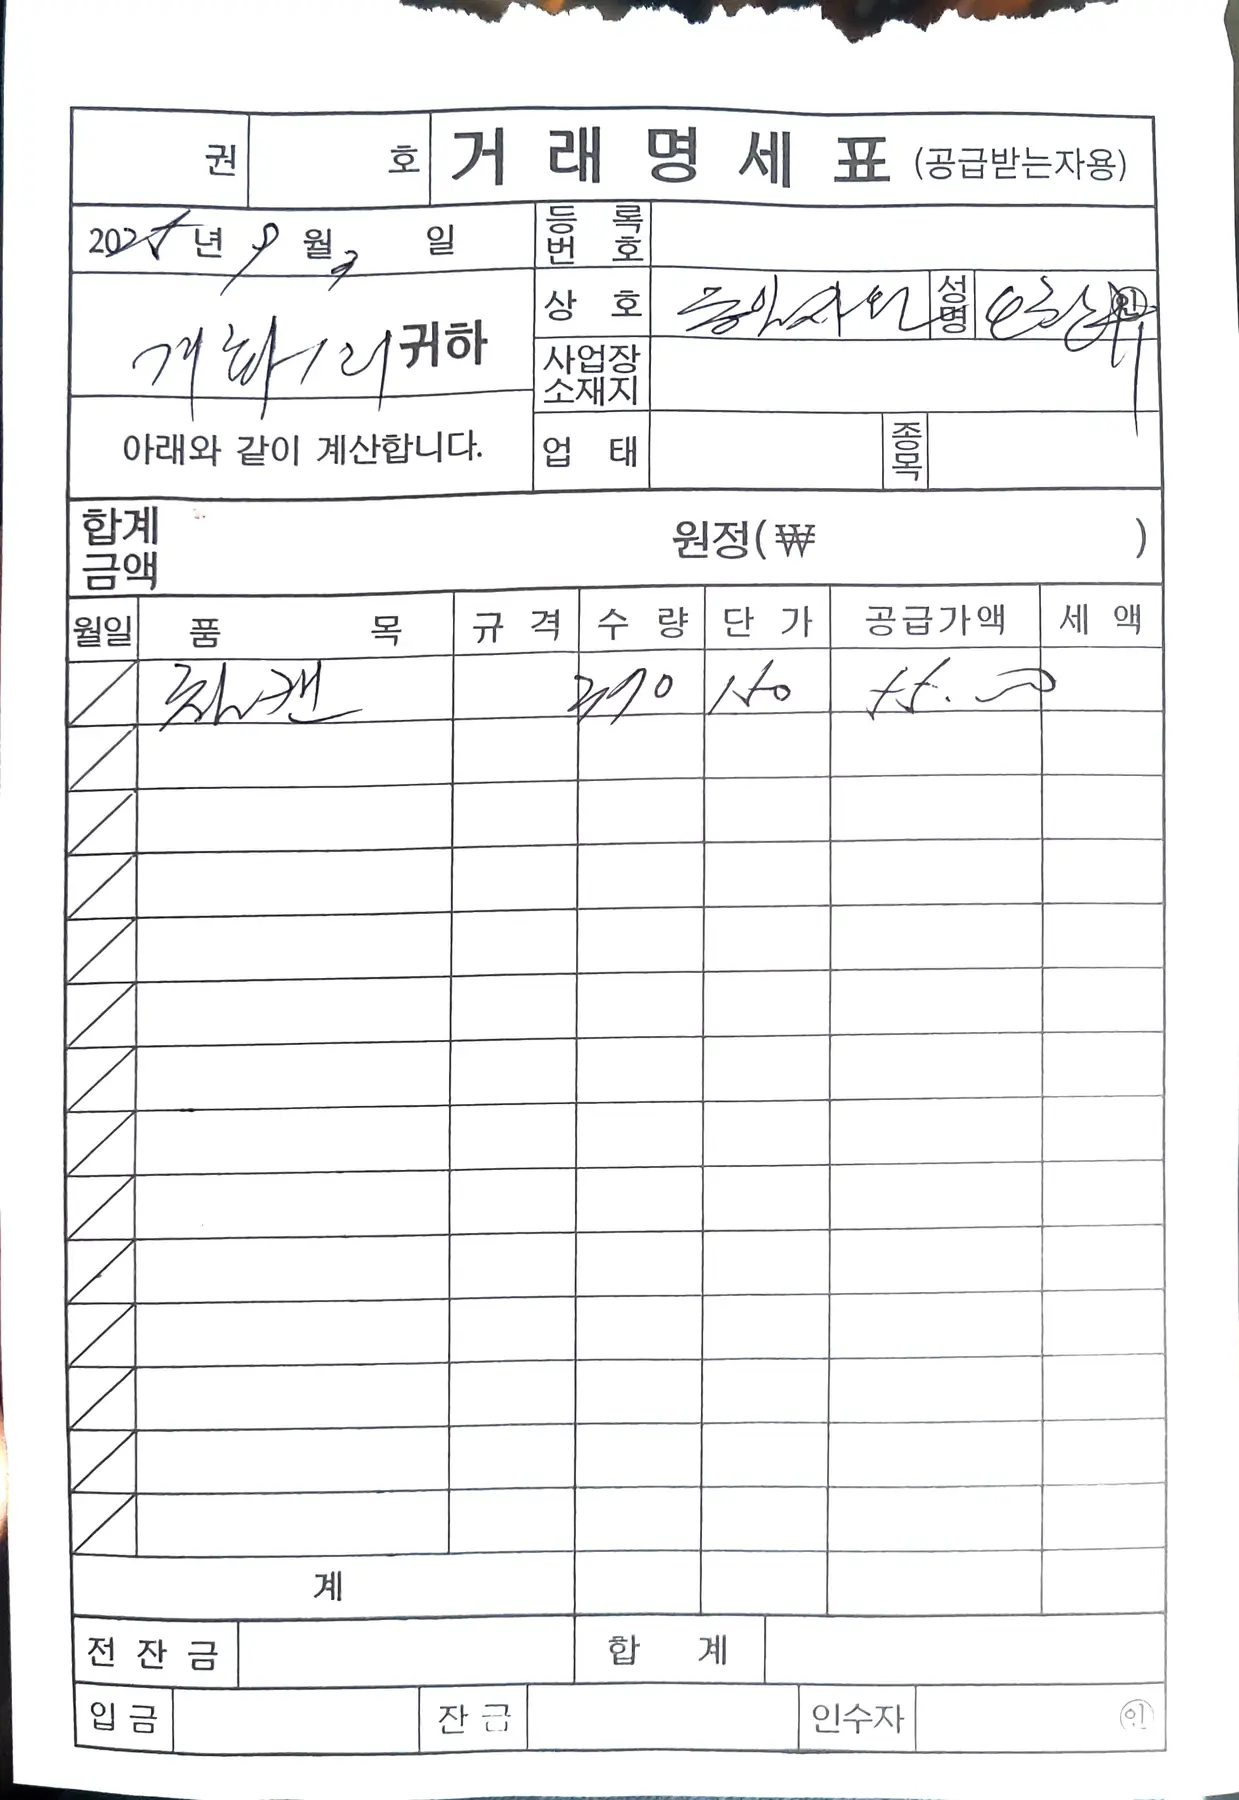 권 호 거 래 명 세 표 (공급받는자용)
2025년 9월 2 일
등 록 번 호
귀하
상 호 성명 인
사업장 소재지
아래와 같이 계산합니다.
업 태 종목
합계 금액 원정(₩ )
월일 품 목 규 격 수 량 단 가 공급가액 세 액
370 150
계
전 잔 금 합 계
입 금 잔 금 인수자 인